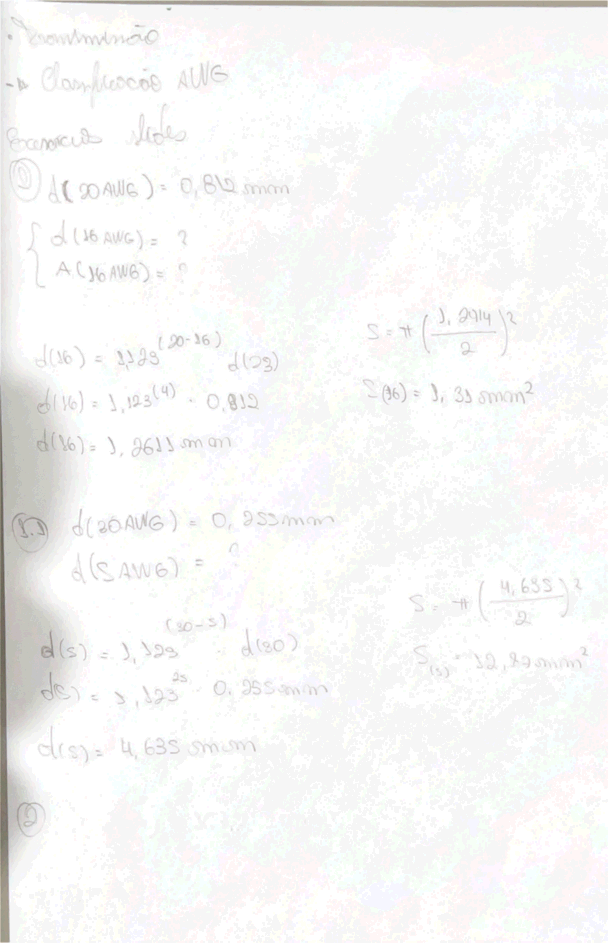 • Transmissão
→ Classificação AWG
Exercícios slides
① d(20AWG) = 0,812 mm
d(16AWG) = ?
A(16AWG) = ?
d(16) = 1,123^(20-16) d(20)
d(16) = 1,123^(4) · 0,812
d(16) = 1,2611 mm
S = π (1,2914/2)²
S(16) = 1,31 mm²
1.1 d(30AWG) = 0,255mm
d(5AWG) = ?
d(5) = 1,123^(30-5) · d(30)
d(5) = 1,123^25 · 0,255mm
d(5) = 4,635 mm
S = π (4,635/2)²
S(5) = 12,82 mm²
②